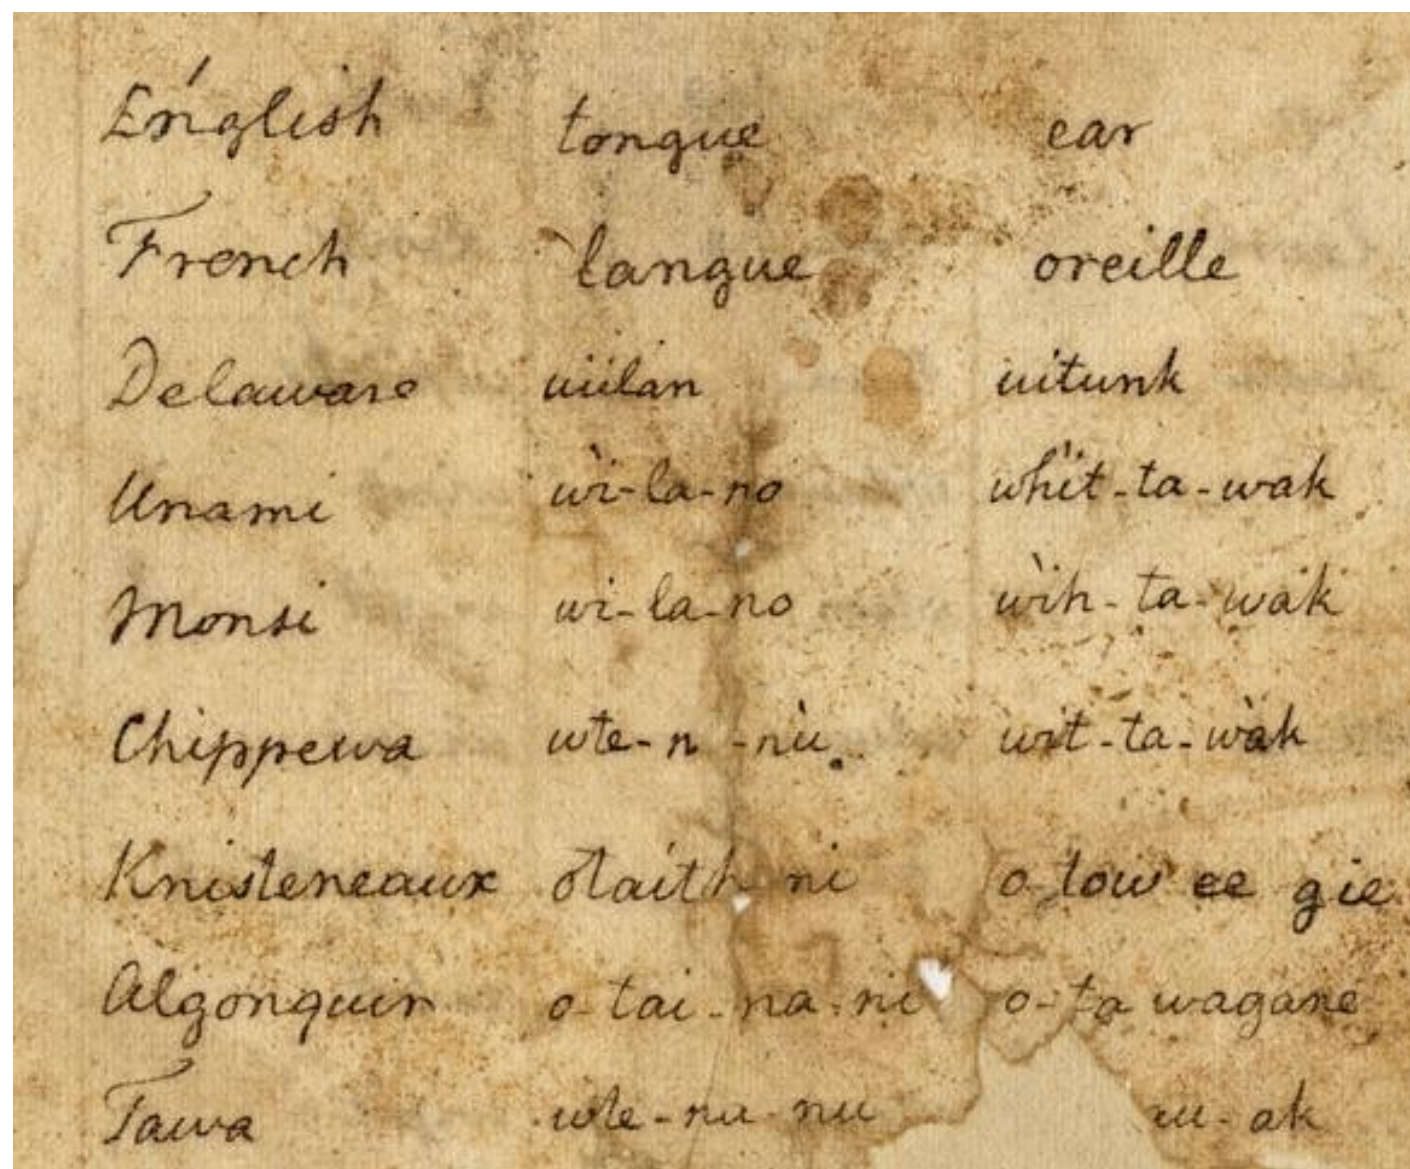 English tongue ear
French langue oreille
Delaware wilan witunk
Unami wì-la-no whit-ta-wak
Monsi wi-la-no wìh-ta-wak
Chippewa wte-n -nù wit-ta-wàk
Knisteneaux otaith ni o-tow ee gie
Algonquin o-tai-na-ni o-ta wagane
Tawa wte-nu-nu -ak